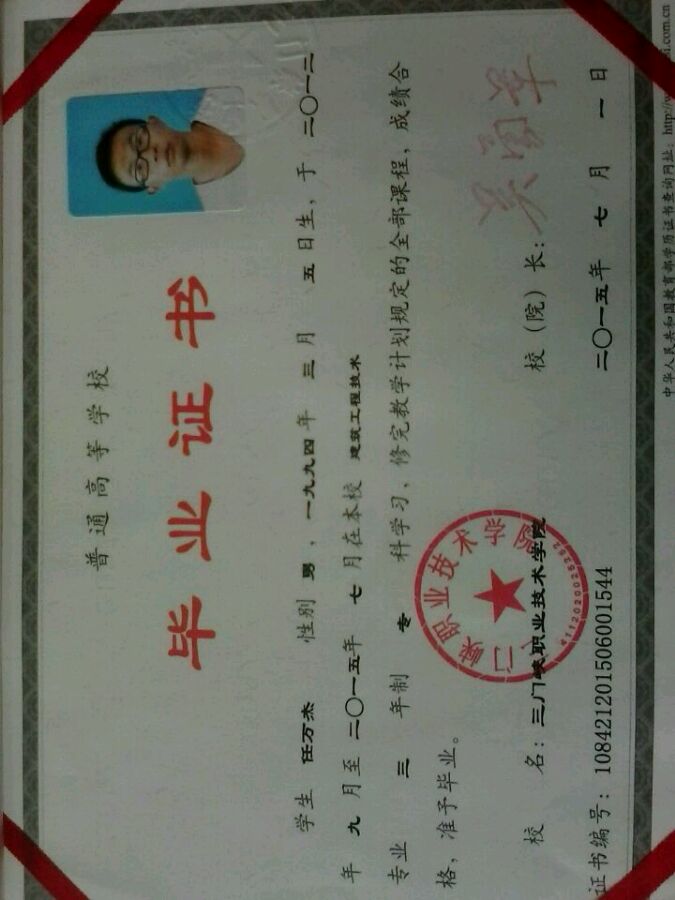 普通高等学校
毕业证书
学生 任万杰 性别 男 ，一九九四年 三 月 五 日生，于 二〇一二
年 九 月至 二〇一五年 七 月在本校 建筑工程技术
专业 三 年制 专 科学习、修完教学计划规定的全部课程，成绩合
格，准予毕业。
三门峡职业技术学院
4112020026262
校 名：三门峡职业技术学院 校（院）长：
证书编号：108421201506001544 二〇一五年 七 月 一 日
中华人民共和国教育部学历证书查询网址：